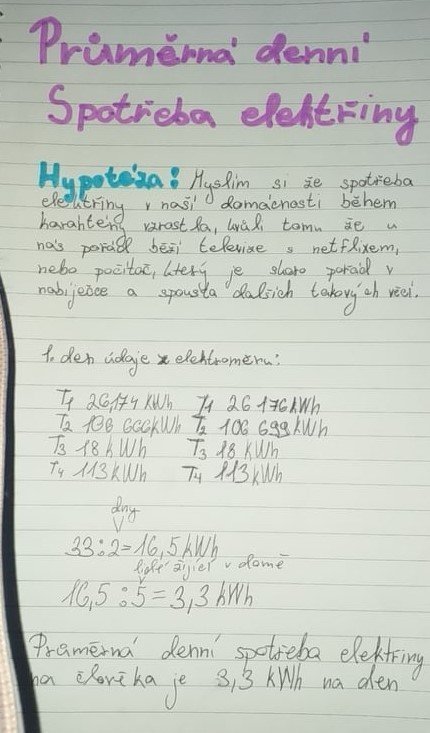 Průměrná denní
Spotřeba elektřiny
Hypotéza: Myslím si že spotřeba
elektřiny v naší domácnosti během
karantény vzrostla, kvůli tomu že u
nás pořád běží televize s netflixem,
nebo počítač, který je skoro pořád v
nabíječce a spousta dalších takových věcí.
1. den údaje z elektroměru:
T1 26,174 kWh T1 26 176 kWh
T2 106 666 kWh T2 106 699 kWh
T3 18 kWh T3 18 kWh
T4 113 kWh T4 113 kWh
dny
33:2=16,5 kWh
lidé žijící v domě
16,5:5=3,3 kWh
Průměrná denní spotřeba elektřiny
na člověka je 3,3 kWh na den